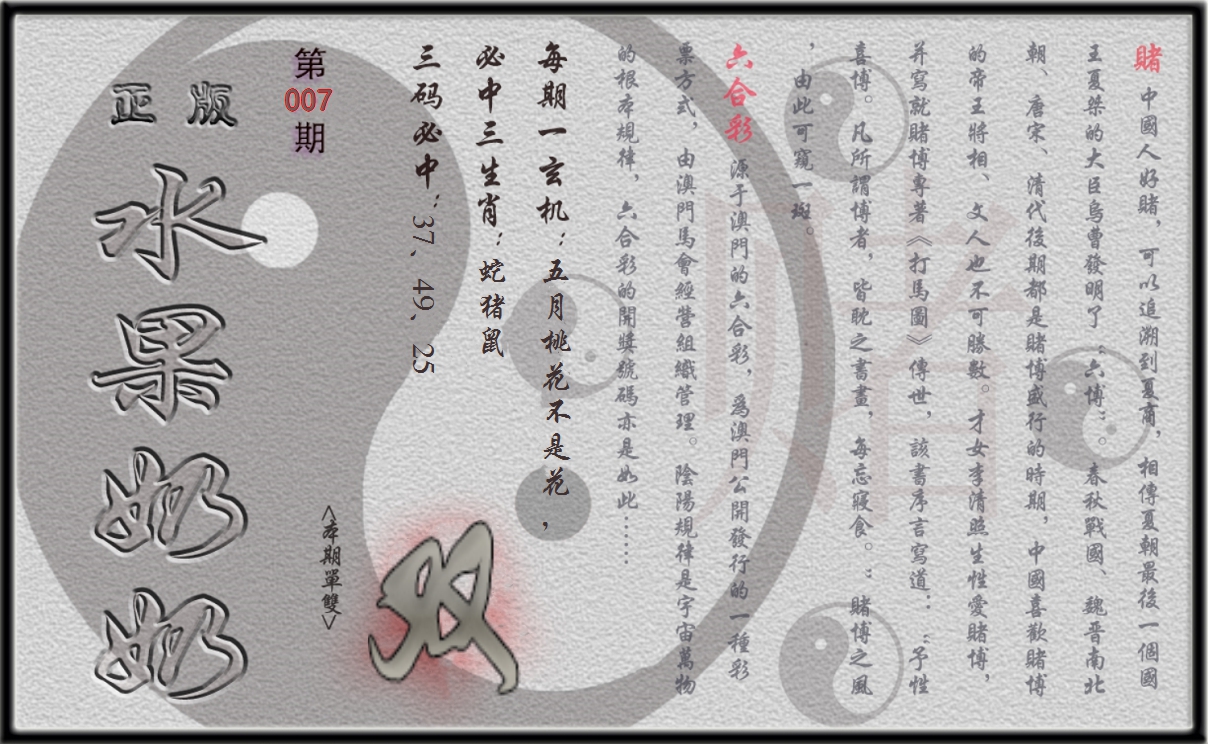 賭 中國人好賭，可以追溯到夏商，相傳夏朝最後一個國
王夏桀的大臣烏曹發明了“六博”。春秋戰國、魏晉南北
朝、唐宋、清代後期都是賭博盛行的時期，中國喜歡賭博
的帝王將相、文人也不可勝數。才女李清照生性愛賭博，
并寫就賭博專著《打馬圖》傳世，該書序言寫道：“予性
喜博。凡所謂博者，皆耽之書畫，每忘寢食。：賭博之風
，由此可窺一斑。
六合彩 源于澳門的六合彩，爲澳門公開發行的一種彩
票方式，由澳門馬會經營組織管理。陰陽規律是宇宙萬物
的根本規律，六合彩的開獎號碼亦是如此……
每期一玄机：五月桃花不是花，
必中三生肖：蛇猪鼠
三码必中：37、49、25
<本期單雙>
双
第
007
期
正版
水果奶奶